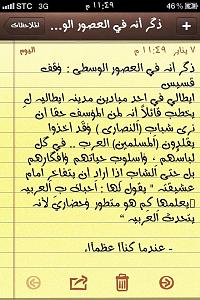 STC 3G ١١:٤٩ م 46%
الملاحظات ذكر أنه في العصور الو... +
اليوم ٧ يناير ١١:٤٩ م
ذكر أنه في العصور الوسطى : وقف
قسيس
ايطالي في احد ميادين مدينه ايطاليه ل
يخطب قائلاً انه لمن المؤسف حقا ان
نرى شباب (النصارى ) وقد اخذوا
يقلدون (المسلمين) العرب .. في كل
لباسهم . وأسلوب حياتهم وأفكارهم
بل حتى الشاب اذا اراد ان يتفاخر امام
عشيقته " يقول لها : أحبك ب العربيه
يعلمها كم هو متطور وحضاري لأنه
يتحدث العربيه "
- عندما كناا عظماا.